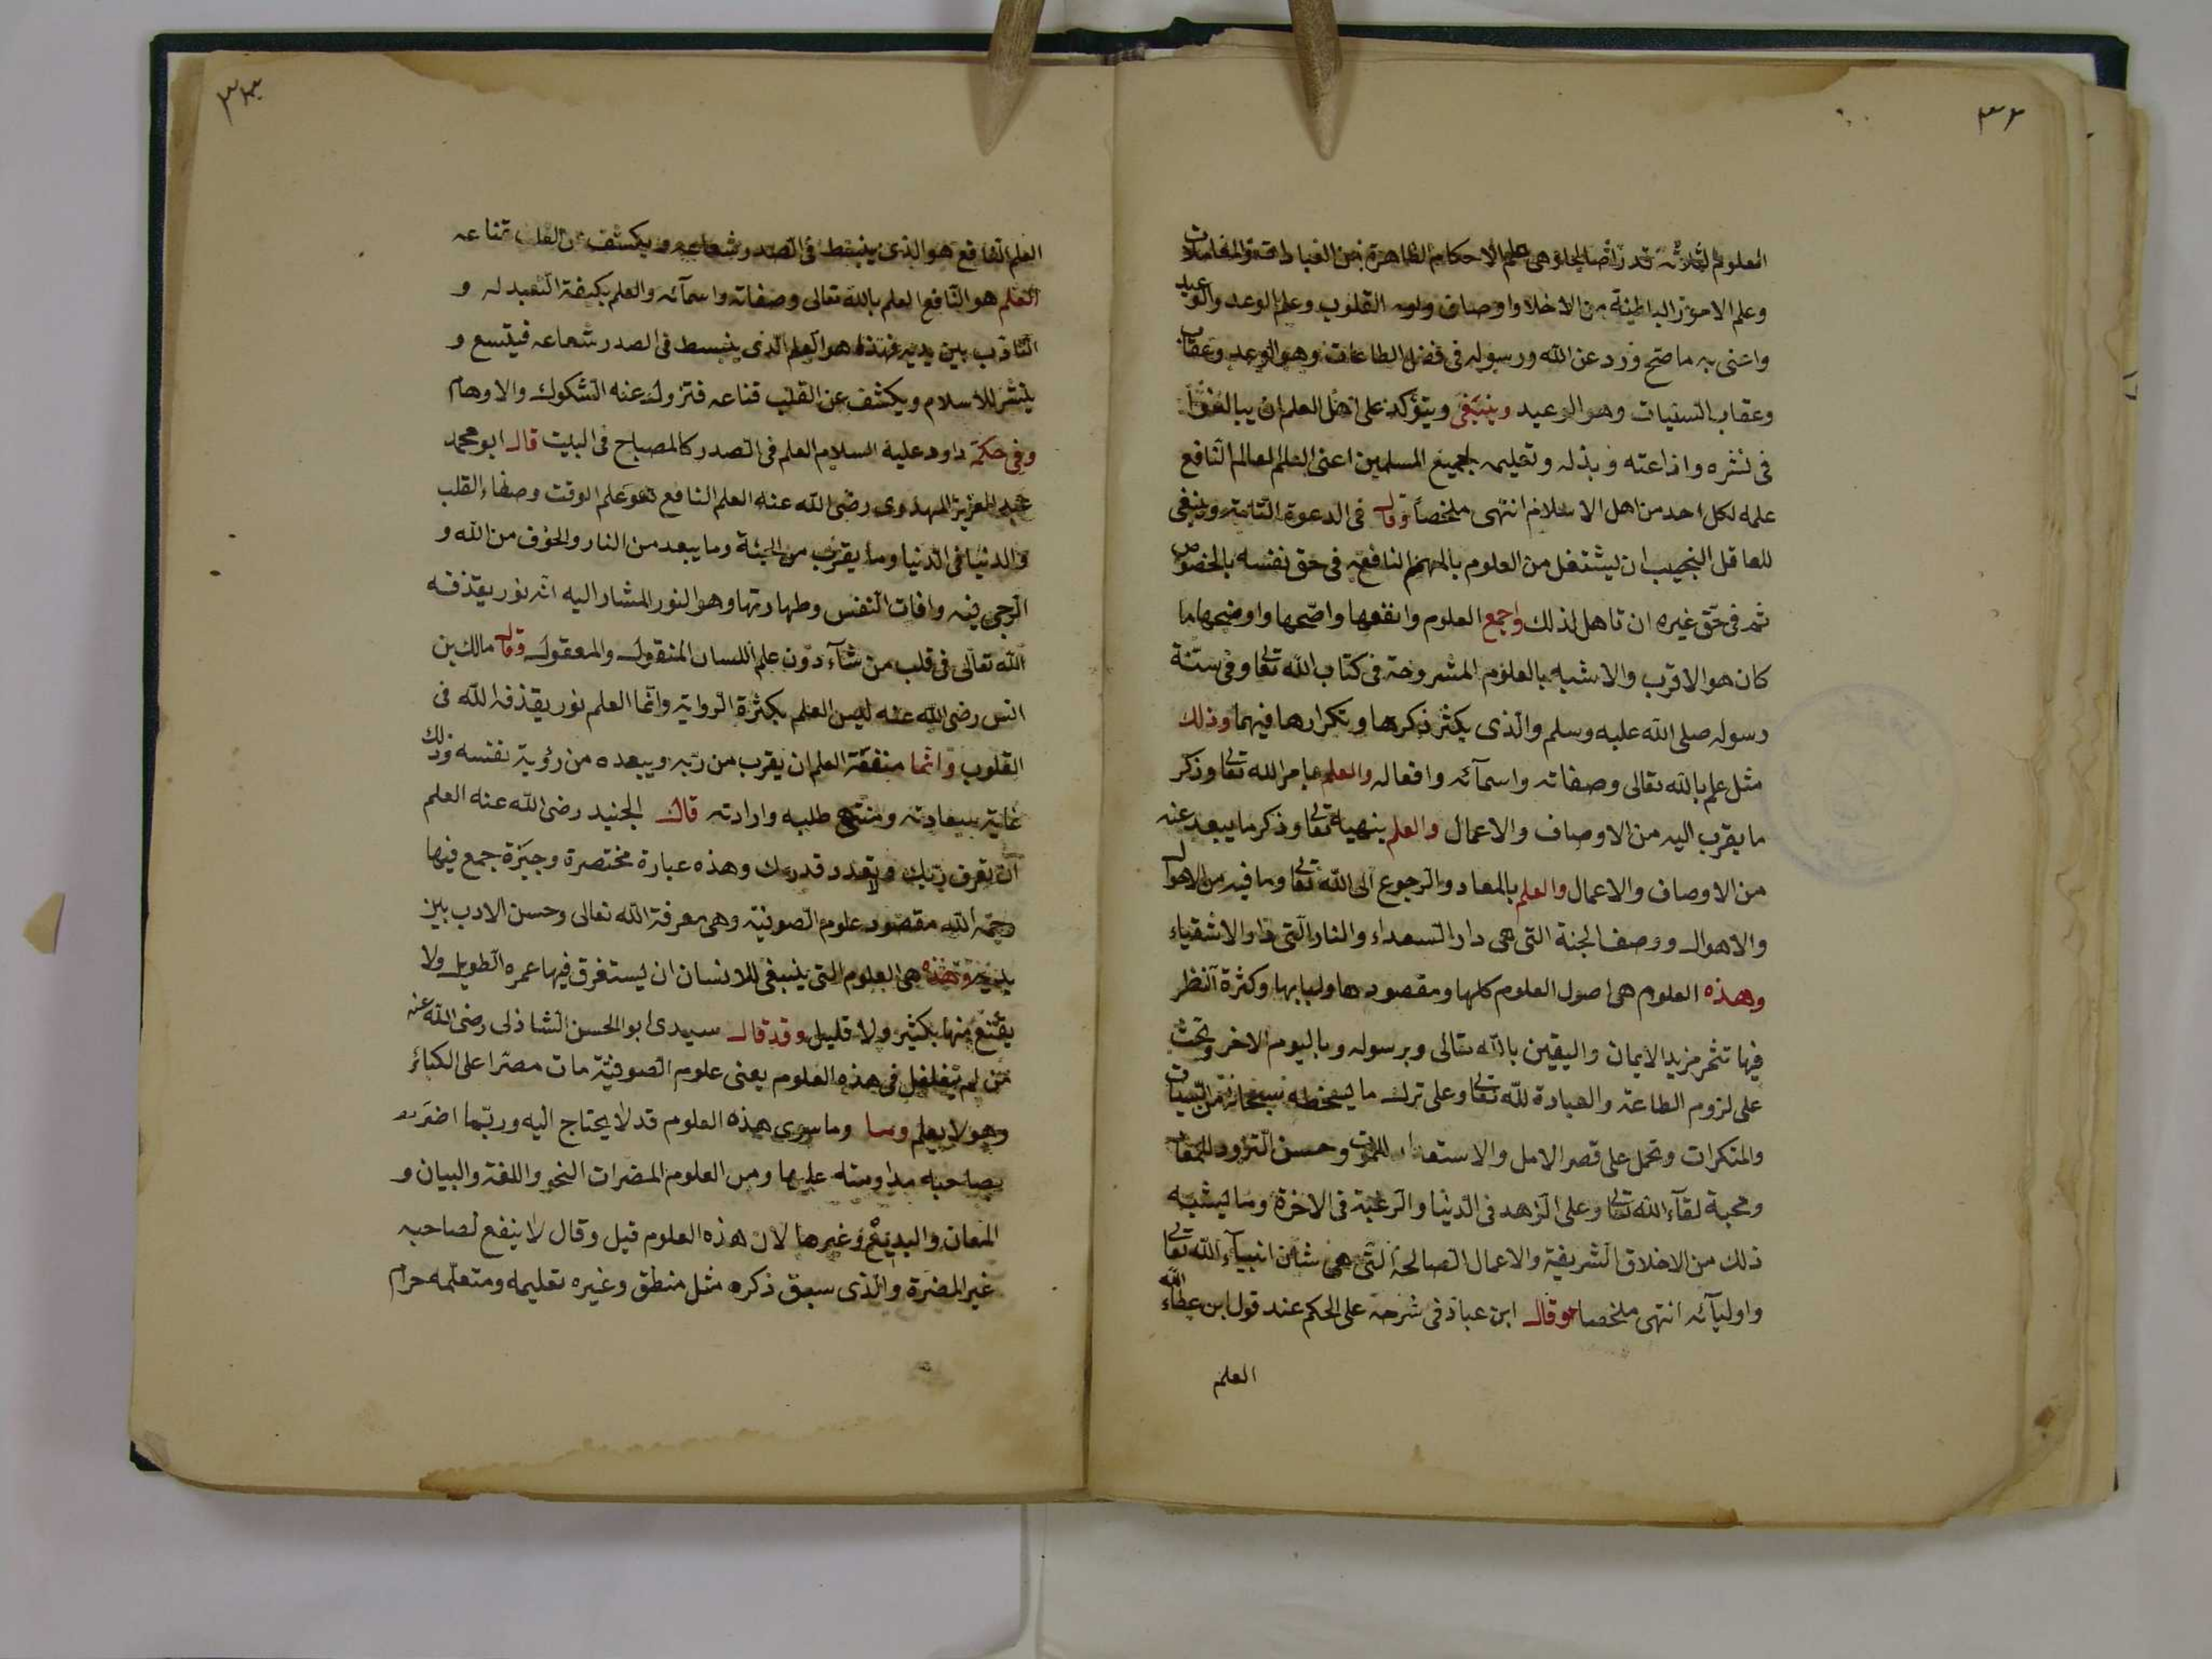 ٣٣
العلوم الثلاثة قد وهى علم الاحكام الظاهرة من العبادات والمعاملات
وعلم الامور الباطنة من الاخلاق واوصاف القلوب وعلم الوعد والوعيد
واعنى به ما صح ورد عن الله ورسوله فى فضل الطاعات وهو الوعد وعقاب
وعقاب السئيات وهو الوعيد وينبغى ويتؤكد على اهل العلم ان يبالغوا
فى نشره واذاعته وبذله وتعليمه لجميع المسلمين اعنى العلم العالم النافع
علمه لكل احد من اهل الاسلام انتهى ملخصاً وقال فى الدعوة التامة وينبغى
للعاقل النجيب ان يشتغل من العلوم بالمهم النافع فى حق نفسه بالخصوص
ثم فى حق غيره ان تاهل لذلك واجمع العلوم وانفعها واصحها واوضحها ما
كان هو الاقرب والاشبه بالعلوم المشروحة فى كتاب الله تعالى وفى سنة
رسوله صلى الله عليه وسلم والذى يكثر ذكرها وتكرارها فيهما وذلك
مثل علم بالله تعالى وصفاته واسمآئه وافعاله والعلم بامر الله تعالى وذكر
ما يقرب اليه من الاوصاف والاعمال والعلم بنهيه تعالى وذكر ما يبعد عنه
من الاوصاف والاعمال والعلم بالمعاد والرجوع الى الله تعالى وما فيه من الاهوال
والاهوال ووصف الجنة التى هى دار السعداء والنار التى دار الاشقياء
وهذه العلوم هى اصول العلوم كلها ومقصودها ولبابها وكثرة النظر
فيها تثمر مزيد الايمان واليقين بالله تعالى وبرسوله وباليوم الاخر وتحث
على لزوم الطاعة والعبادة لله تعالى وعلى ترك ما يسخطه سبحانه من السيات
والمنكرات وتحمل على قصر الامل والاستعداد للموت وحسن التزود للمعاد
ومحبة لقآء الله تعالى وعلى الزهد فى الدنيا والرغبة فى الاخرة وما يشبه
ذلك من الاخلاق الشريفة والاعمال الصالحة التى هى شان انبيآء الله تعالى
واوليآئه انتهى ملخصا وقال ابن عباد فى شرحه على الحكم عند قول ابن عطاء الله
العلم
٣٤
العلم النافع هو الذى ينبسط فى الصدر شعاعه ويكشف عن القلب قناعه
العلم هو النافع العلم بالله تعالى وصفاته واسمآئه والعلم بكيفة التعبد له و
التاذب بين يديه فهذا هو العلم الذى ينبسط فى الصدر شعاعه فيتسع و
ينشر للاسلام ويكشف عن القلب قناعه فتزول عنه الشكوك والاوهام
وفى حكمة داود عليه السلام العلم فى الصدر كالمصباح فى البيت قال ابو محمد
عبد العزيز المهدوى رضى الله عنه العلم النافع هو علم الوقت وصفاء القلب
والدنيا فى الدنيا وما يقرب من الجنة وما يبعد من النار والخوف من الله و
الرجى فيه وافات النفس وطهارتها وهو النور المشار اليه انه نور يقذفه
الله تعالى فى قلب من شآء دون علم اللسان المنقول والمعقول وقال مالك بن
انس رضى الله عنه ليس العلم بكثرة الرواية وانما العلم نور يقذفه الله فى
القلوب وانما منفعة العلم ان يقرب من ربه ويبعده من رؤية نفسه وذلك
غاية سعادته ومنتهى طلبه وارادته قال الجنيد رضى الله عنه العلم
ان تعرف ربك و تعدد قدرك وهذه عبارة مختصرة وجيزة جمع فيها
رحمه الله مقصود علوم الصوفية وهى معرفة الله تعالى وحسن الادب بين
يديه وهذه هى العلوم التى ينبغى للانسان ان يستغرق فيها عمره الطويل ولا
يقتنع منها بكثير ولا قليل وقد قال سيدى ابو الحسن الشاذلى رضى الله عنه
من لم يتغلغل فى هذه العلوم يعنى علوم الصوفية مات مصرا على الكبائر
وهو لا يعلم وما وما سوى هذه العلوم قد لا يحتاج اليه وربما اضرت
بصاحبه مداومته عليها ومن العلوم المضرات النحو واللغة والبيان و
المعان والبديع وغيرها لان هذه العلوم قيل وقال لا ينفع لصاحبه
غير المضرة والذى سبق ذكره مثل منطق وغيره تعليمه ومتعلمه حرام